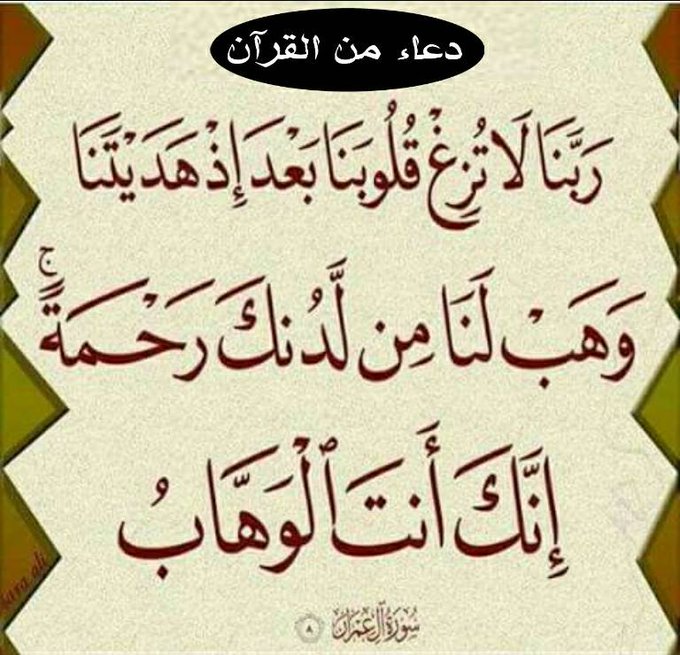 دعاء من القرآن
رَبَّنَا لَا تُزِغْ قُلُوبَنَا بَعْدَ إِذْ هَدَيْتَنَا
وَهَبْ لَنَا مِن لَّدُنكَ رَحْمَةً ۚ
إِنَّكَ أَنتَ ٱلْوَهَّابُ
سُورَةُ آلِ عِمْرَان ٨
sara ali